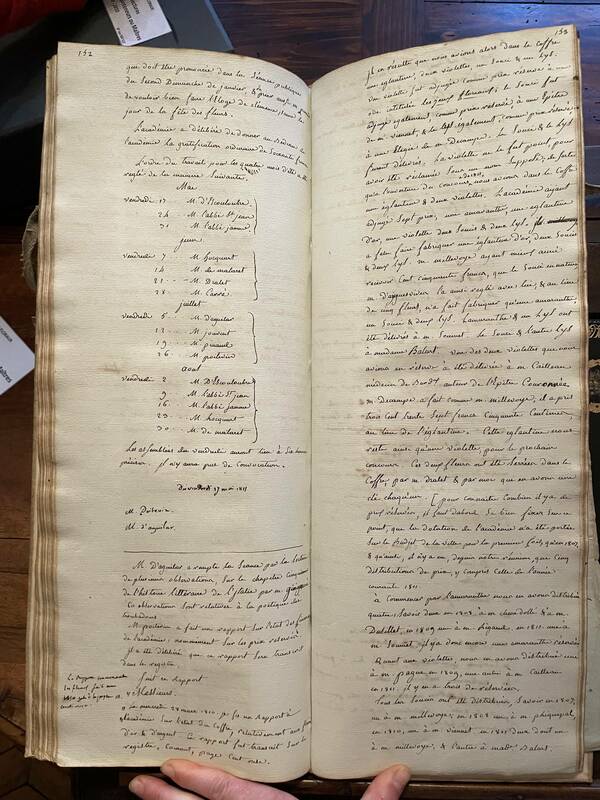 152
que doit être prononcé dans la Séance publique
du Second Dimanche de janvier, & prier aussi m.
de vouloir bien faire l'Eloge de clémence Isaure le
jour de la fête des fleurs.
L'académie a délibéré de donner au Bedeau de
l'académie la gratification ordinaire de Soixante francs
L'ordre du travail pour les quatre mois d'été a été
réglé de la manière suivante.
Mai
vendredi 17 M. D'Escouloubre
24 M. l'abbé St jean
31 M. l'abbé jamme
juin
vendredi 7 M. hocquart
14 M. de malaret
21 M. Dralet
28 M. Carré
juillet
vendredi 5 M. d'aguilar
12 M. jouvent
19 M. pinaud
26 M. poitevin
aout
vendredi 2 M. D'Escouloubre
9 M. l'abbé St jean
16 M. l'abbé jamme
23 M. hocquart
30 M. de malaret
Les assemblées du vendredi auront lieu à six heures
précises. il n'y aura pas de convocation.
Du vendredi 17 mai 1811
M. Poitevin.
M. d'aguilar
M. D'aguilar a rempli la Séance par la lecture
de plusieurs observations, sur le chapitre cinquième
de l'histoire littéraire de l'Italie par m. ginguené
Ces observations sont relatives à la poétique des
troubadours
M. poitevin a fait un rapport sur l'état des fleurs
de l'académie, nommément sur les prix réservés.
il a été délibéré que ce rapport sera transcrit
dans le registre.
fait en rapport
Messieurs.
Le mercredi 28 mars 1810, je fis un rapport à
l'académie sur l'état du Coffre, relativement aux fleurs
d'or & d'argent. Ce rapport fut transcrit sur le
registre, courant, page cent onze.
153
il en résulte que nous avions alors dans le coffre
une églantine, deux violettes, un Souci & un Lys.
une violette fut adjugée comme prix réservé à une
ode intitulée les jeux floraux; le Souci fut
adjugé également, comme prix réservé, à une Epitre
de m. vanaut, & le Lys également, comme prix réservé
à une Elégie de m. Decampe. Le Souci & le Lys
furent délivrés. La violette ne le fut point, pour
avoir été réclamée sous un nom supposé; de sorte
qu'à l'ouverture du Concours de 1811, nous avions dans le Coffre
une églantine & deux violettes. L'académie ayant
adjugé Sept prix, une amarante, une églantine
d'or, une violette deux Soucis & deux Lys.
a falu faire fabriquer une églantine d'or, deux Soucis
& deux Lys. m. millevoye ayant mieux aimé
recevoir cent cinquante francs, que le Souci en nature
m. d'ayguesvives l'a ainsi réglé avec lui, & au lieu
de cinq fleurs, n'a fait fabriquer qu'une amarante,
un Souci & deux Lys. L'amaranthe & un Lys ont
été délivrés à m. Soumet. Le Souci & l'autre Lys
à madame Balard. une des deux violettes que nous
avions en réserve a été délivrée à m. Cailleau
médecin de Bord.x auteur de l'Epitre Couronnée
m. Decampe a fait comme m. millevoye, il a pris
trois cent trente Sept francs Cinquante Centimes
au lieu de l'églantine. Cette églantine nous
reste ainsi qu'une violette, pour le prochain
concours. Ces deux fleurs ont été Serrées dans le
Coffre, par m. dralet & par moi qui en avons une
clé chaqu'un. pour connaitre Combien il y a de
prix réservés, il faut dabord se bien fixer sur ce
point, que la dotation de l'académie n'a été portée
sur le Budget de la ville pour la première fois, qu'en 1807
& qu'ainsi, il n'y a eu, depuis notre réunion, que Cinq
distributions de prix, y compris celle de l'année
courante 1811.
à commencer par l'amaranthe nous en avons distribué
quatre; savoir deux en 1808 à m. chenedollé & à m.
Dutillet, en 1809 une à m. Sigaud, en 1811 une à
m. Soumet. il y a donc encore une amaranthe réservée
Quant aux violettes, nous en avons distribué une
à m. pagne en 1809, une autre à m. Cailleau
en 1811. il y en a trois de réservées.
Tous les Soucis ont été distribués, Savoir en 1807,
un à m. millevoye; en 1808 un à m. phiquepal,
en 1810, un à m. vanaut, en 1811 deux dont un
à m. millevoye, & l'autre à mad.e Balard.